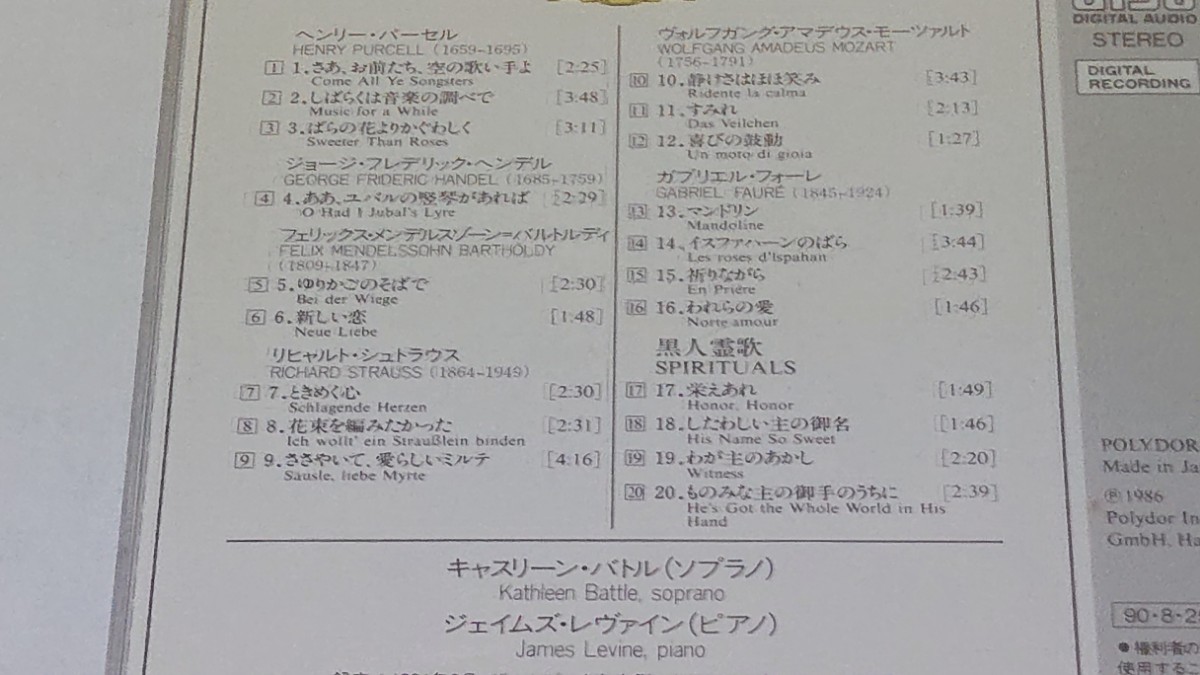 ヘンリー・パーセル
HENRY PURCELL (1659-1695)
1 1.さあ、お前たち、空の歌い手よ [2:25]
Come All Ye Songsters
2 2.しばらくは音楽の調べで [3:48]
Music for a While
3 3.ばらの花よりかぐわしく [3:11]
Sweeter Than Roses
ジョージ・フレデリック・ヘンデル
GEORGE FRIDERIC HANDEL (1685-1759)
4 4.ああ、ユバルの竪琴があれば [2:29]
O Had I Jubal's Lyre
フェリックス・メンデルスゾーン=バルトルディ
FELIX MENDELSSOHN BARTHOLDY
(1809-1847)
5 5.ゆりかごのそばで [2:30]
Bei der Wiege
6 6.新しい恋 [1:48]
Neue Liebe
リヒャルト・シュトラウス
RICHARD STRAUSS (1864-1949)
7 7.ときめく心 [2:30]
Schlagende Herzen
8 8.花束を編みたかった [2:31]
Ich wollt' ein Straußlein binden
9 9.ささやいて、愛らしいミルテ [4:16]
Säusle, liebe Myrte
ヴォルフガング・アマデウス・モーツァルト
WOLFGANG AMADEUS MOZART
(1756-1791)
10 10.静けさはほほ笑み [3:43]
Ridente la calma
11 11.すみれ [2:13]
Das Veilchen
12 12.喜びの鼓動 [1:27]
Un moto di gioia
ガブリエル・フォーレ
GABRIEL FAURÉ (1845-1924)
13 13.マンドリン [1:39]
Mandoline
14 14.イスファハーンのばら [3:44]
Les roses d'Ispahan
15 15.祈りながら [2:43]
En Prière
16 16.われらの愛 [1:46]
Norte amour
黒人霊歌
SPIRITUALS
17 17.栄えあれ [1:49]
Honor, Honor
18 18.したわしい主の御名 [1:46]
His Name So Sweet
19 19.わが主のあかし [2:20]
Witness
20 20.ものみな主の御手のうちに [2:39]
He's Got the Whole World in His
Hand
キャスリーン・バトル(ソプラノ)
Kathleen Battle, soprano
ジェイムズ・レヴァイン(ピアノ)
James Levine, piano
DIGITAL AUDIO
STEREO
DIGITAL
RECORDING
POLYDOR
Made in Ja
℗1986
Polydor In
GmbH, Ha
90・8・2
●権利者の
使用するこ